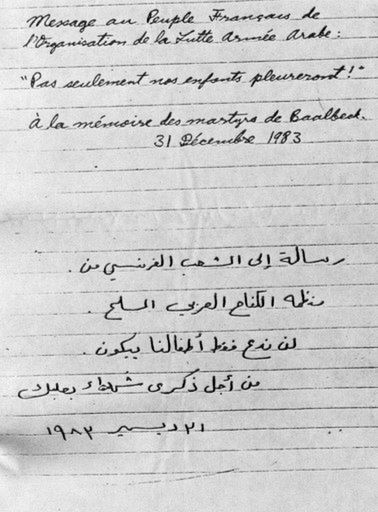 Message au Peuple Français de
l'Organisation de la Lutte Armée Arabe :
"Pas seulement nos enfants pleureront !"
À la mémoire des martyrs de Baalbeck.
31 Décembre 1983
رسالة إلى الشعب الفرنسي من .
منظمة الكفاح العربي المسلح .
لن ندع فقط أطفالنا يبكون .
من أجل ذكرى شهداء بعلبك
٣١ ديسمبر ١٩٨٣